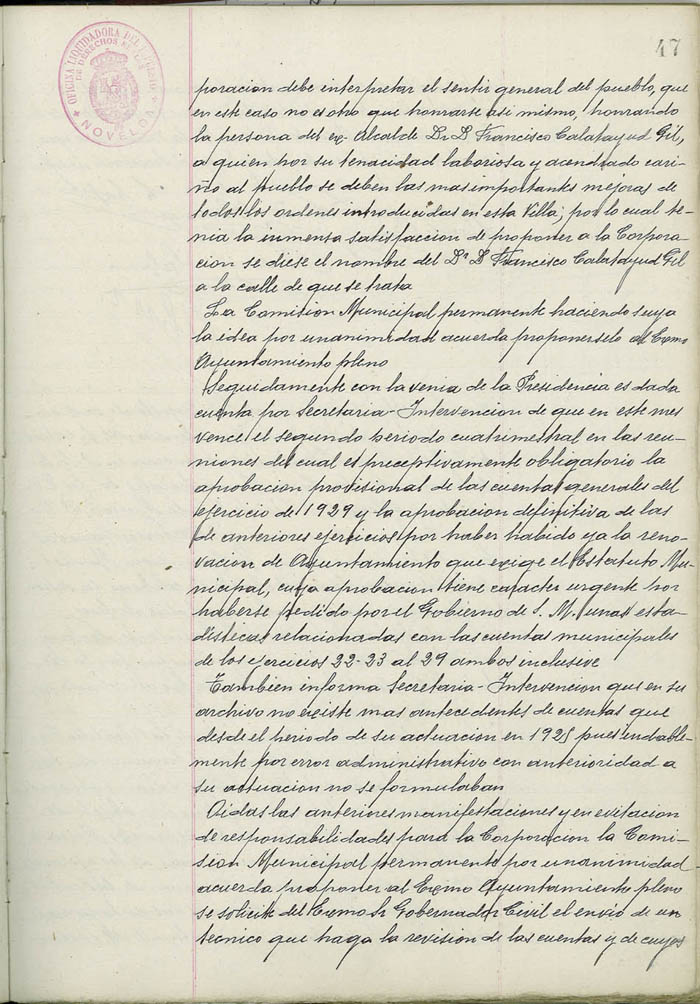 47
OFICINA LIQUIDADORA DEL
DE DERECHOS
NOVELDA
poracion debe interpretar el sentir general del pueblo, que
en este caso no es otro que honrarse asi mismo, honrando
la persona del ex-Alcalde Dr D Francisco Calatayud Gil,
a quien por su tenacidad laboriosa y acendrado cari-
ño al pueblo se deben las mas importantes mejoras de
todos los ordenes introducidas en esta Villa; por lo cual te-
nia la inmensa satisfaccion de proponer a la Corpora-
cion se diese el nombre del Dr D Francisco Calatayud Gil
a la calle de que se trata
La Comision Municipal permanente haciendo suya
la idea por unanimidad acuerda proponerselo al Excmo
Ayuntamiento pleno
Seguidamente con la venia de la Presidencia es dada
cuenta por Secretaria-Intervencion de que en este mes
vence el segundo periodo cuatrimestral en las reu-
niones del cual es preceptivamente obligatorio la
aprobacion provisional de las cuentas generales del
ejercicio de 1929 y la aprobacion definitiva de las
de anteriores ejercicios por haber habido ya la reno-
vacion de Ayuntamiento que exige el Estatuto Mu-
nicipal, cuya aprobacion tiene caracter urgente por
haberse pedido por el Gobierno de S. M. unas esta-
disticas relacionadas con las cuentas municipales
de los ejercicios 22-23 al 29 ambos inclusive
Tambien informa Secretaria-Intervencion que en su
archivo no existe mas antecedentes de cuentas que
desde el periodo de su actuacion en 1925 pues indable-
mente por error administrativo con anterioridad a
su actuacion no se formulaban
Oidas las anteriores manifestaciones y en evitacion
de responsabilidades para la Corporacion la Comi-
sion Municipal permanente por unanimidad
acuerda proponer al Excmo Ayuntamiento pleno
se solicite del Excmo Sr Gobernador Civil el envio de un
tecnico que haga la revision de las cuentas y de cuyos